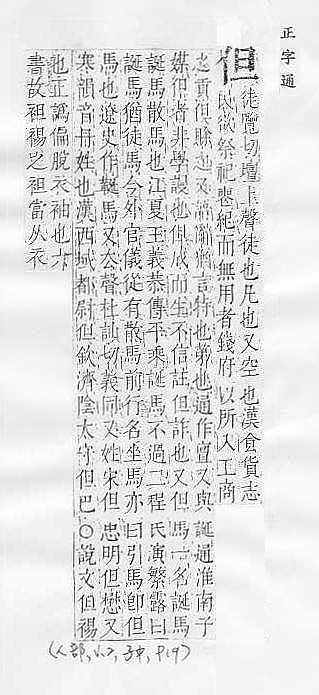 正字通
但
徒覽切壇上聲徒也凡也又空也漢食貨志
民欲祭祀喪紀而無用者錢府以所入工商
之貢但賒之又語辭猶言特也第也通作亶又與誕通淮南子
媒但者非學謾也但成而生不信註但詐也又但馬一名誕馬
誕馬散馬也江夏王義恭傳平乘誕馬不過二程氏演繁露曰
誕馬猶徒馬今外官儀從有散馬前行名坐馬亦曰引馬卽但
馬也遼史作馬又去聲杜訕切義同又姓宋但忠明但懋又
寒韻音丹姓也漢西域都尉但欽濟陰太守但巴○說文但裼
也正譌偏脫衣袖也六
書故袒裼之袒當从衣
(人部,